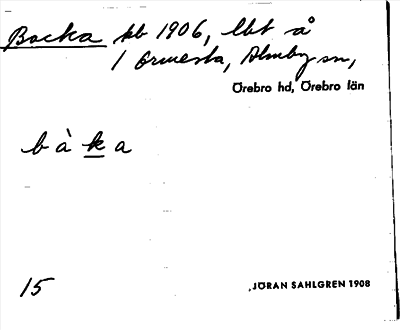 Backa hb 1906, lht å
1 Ormesta, Almby sn,
Örebro hd, Örebro län
b à k a
15
JÖRAN SAHLGREN 1908